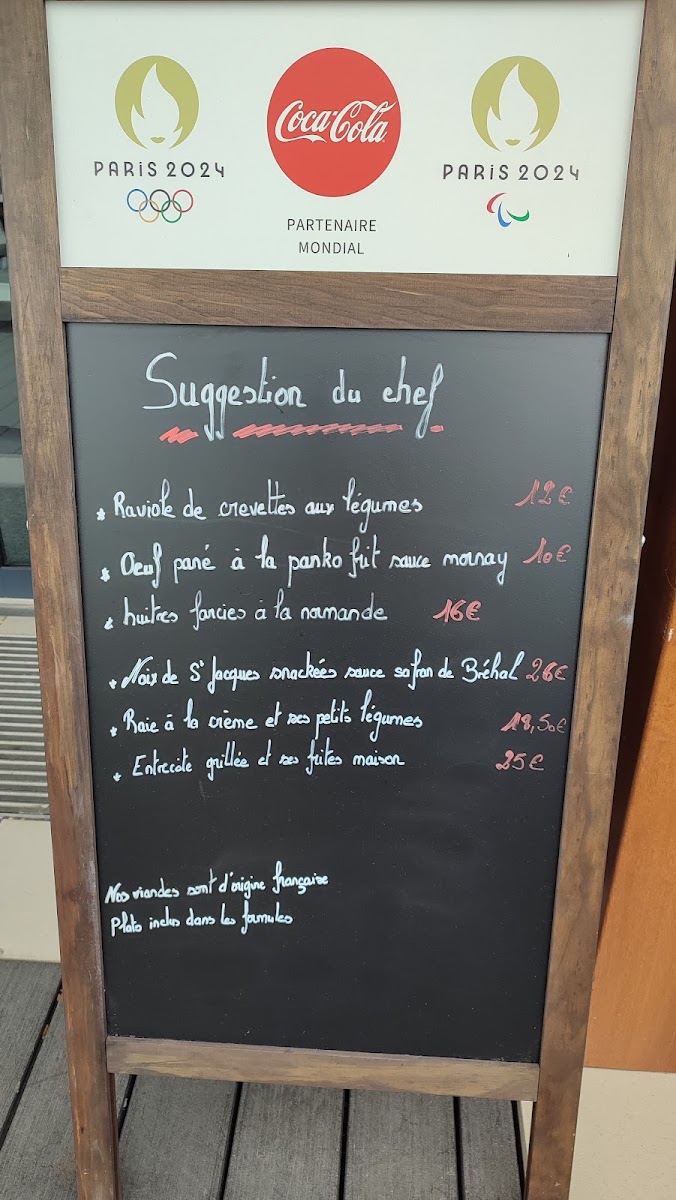 PARIS 2024
Coca-Cola
PARTENAIRE
MONDIAL
PARIS 2024
Suggestion du chef
* Raviole de crevettes aux légumes 12€
* Oeuf pané à la panko frit sauce mornay 10€
* huitres farcies à la normande 16€
* Noix de St Jacques snackées sauce safran de Bréhal 26€
* Raie à la crème et ses petits légumes 18,50€
* Entrecôte grillée et ses frites maison 25€
Nos viandes sont d'origine française
Plats inclus dans les formules